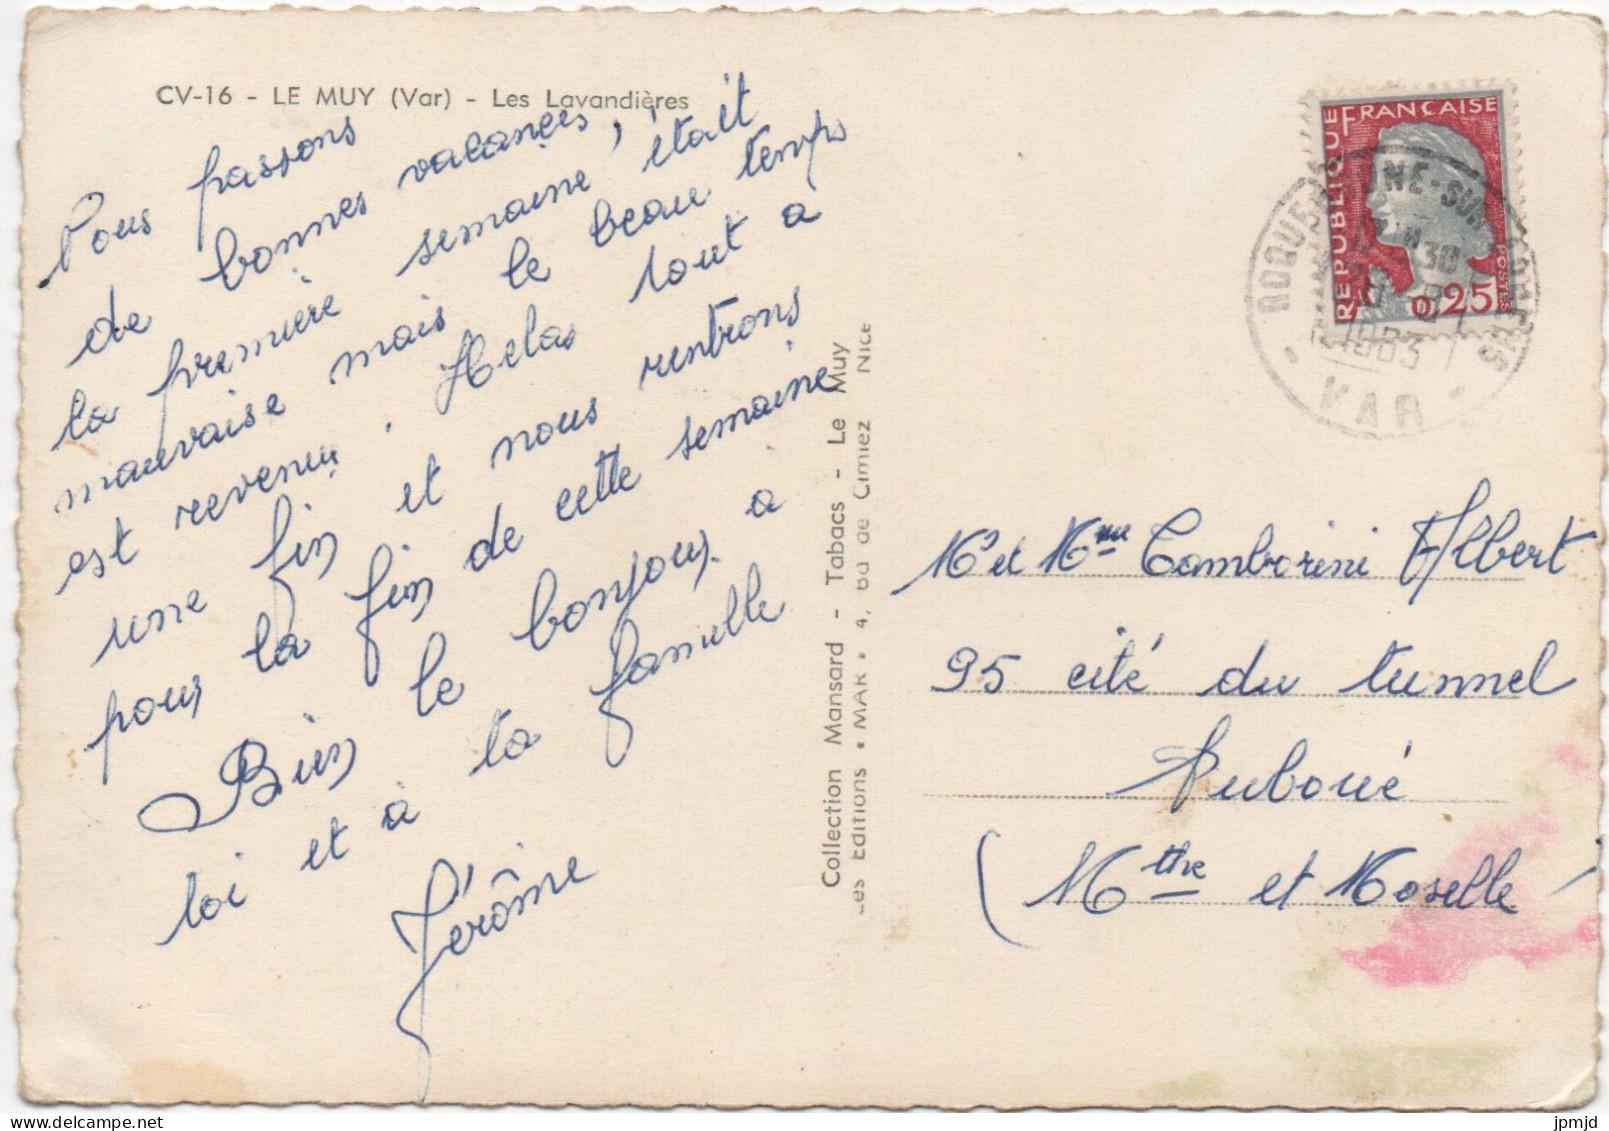 CV-16 - LE MUY (Var) - Les Lavandières
Nous passons
de bonnes vacances,
la première semaine était
mauvaise mais le beau temps
est revenu. Helas tout à
une fin et nous rentrons
pour la fin de cette semaine.
Bien le bonjour à
toi et à ta famille
Jérôme
Collection Mansard - Tabacs - Le Muy
Les Editions "MAR" 4, bd de Cimiez Nice
RÉPUBLIQUE FRANÇAISE
POSTES
0,25
ROQUEBRUNE-SUR-ARGENS
1963
- VAR -
Mr et Mme Tamborini Albert
95 cité du tunnel
Auboué
(Mthe et Moselle
delcampe.net
jpmjd